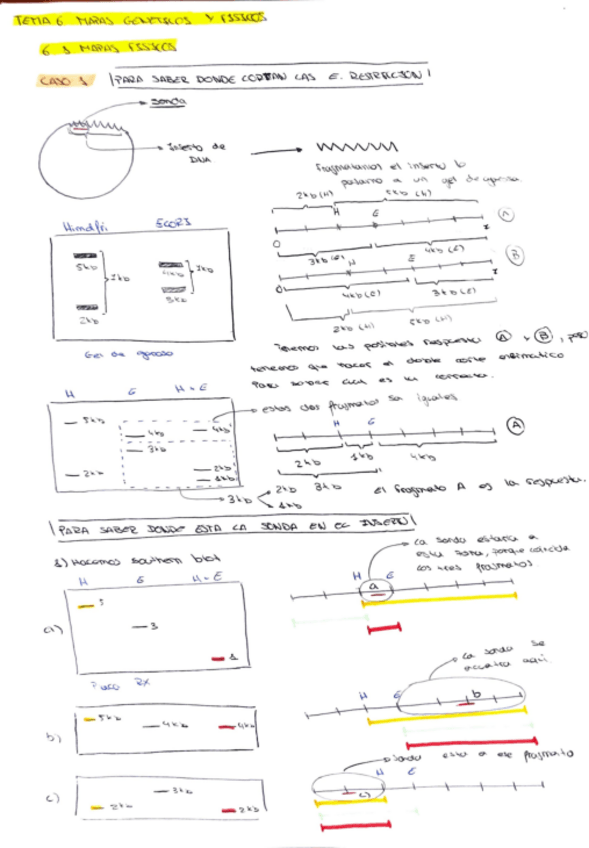 TEMA 6 MAPAS GENETICOS Y FISICOS
6.1 MAPAS FISICOS
CASO 1 PARA SABER DONDE CORTAN LAS E. RESTRICCION
Sonda
Inserto de
DNA
Fragmentamos el inserto y
pasamos a un gel de agarosa
2kb (H) 5kb (H)
H E
A
3kb (E) 4kb (E)
H E
B
4kb (E) 3kb (E)
2kb (H) 5kb (H)
Hindfri ECORI
5kb
1kb
4kb
1kb
3kb
2kb
Gel de agarosa
Tenemos las posibles respuesta A y B, pero
tenemos que hacer el doble corte enzimatico
para saber cual es la correcta.
H E H + E
5kb
4kb 4kb
3kb
2kb 2kb
1kb
estos dos fragmentos son iguales
H E
A
2kb 1kb 4kb
3kb
3kb 2kb
1kb
el fragmento A es la respuesta.
PARA SABER DONDE ESTA LA SONDA EN EL INSERTO
1) Hacemos southern blot
H E H + E
a)
5
3
1
RX
La sonda estaria a
esta zona, porque coincide
los tres fragmentos.
H E
a
b)
5kb 4kb 4kb
La sonda se
encuentra aqui.
H E
b
c)
3kb
2kb 2kb
Sonda esta a ese fragmento
H E
c)